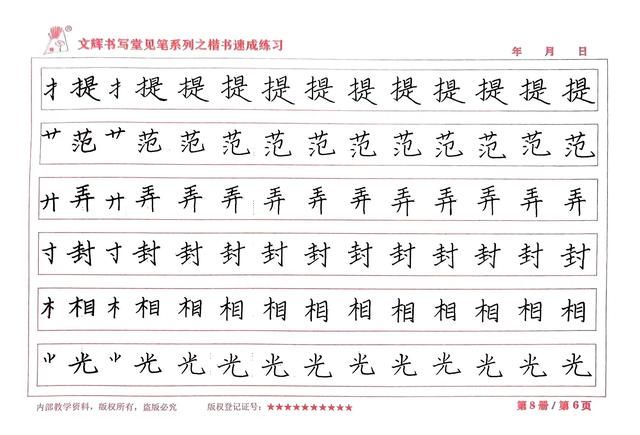 文辉书写堂见笔系列之楷书速成练习 年 月 日
扌提扌提提提提提提提提提提提
艹范艹范范范范范范范范范范范
廾弄廾弄弄弄弄弄弄弄弄弄弄弄
寸封寸封封封封封封封封封封封
木相木相相相相相相相相相相相
⺌光⺌光光光光光光光光光光光
内部教学资料，版权所有，盗版必究 版权登记证号：★★★★★★★★★★ 第8册/第6页